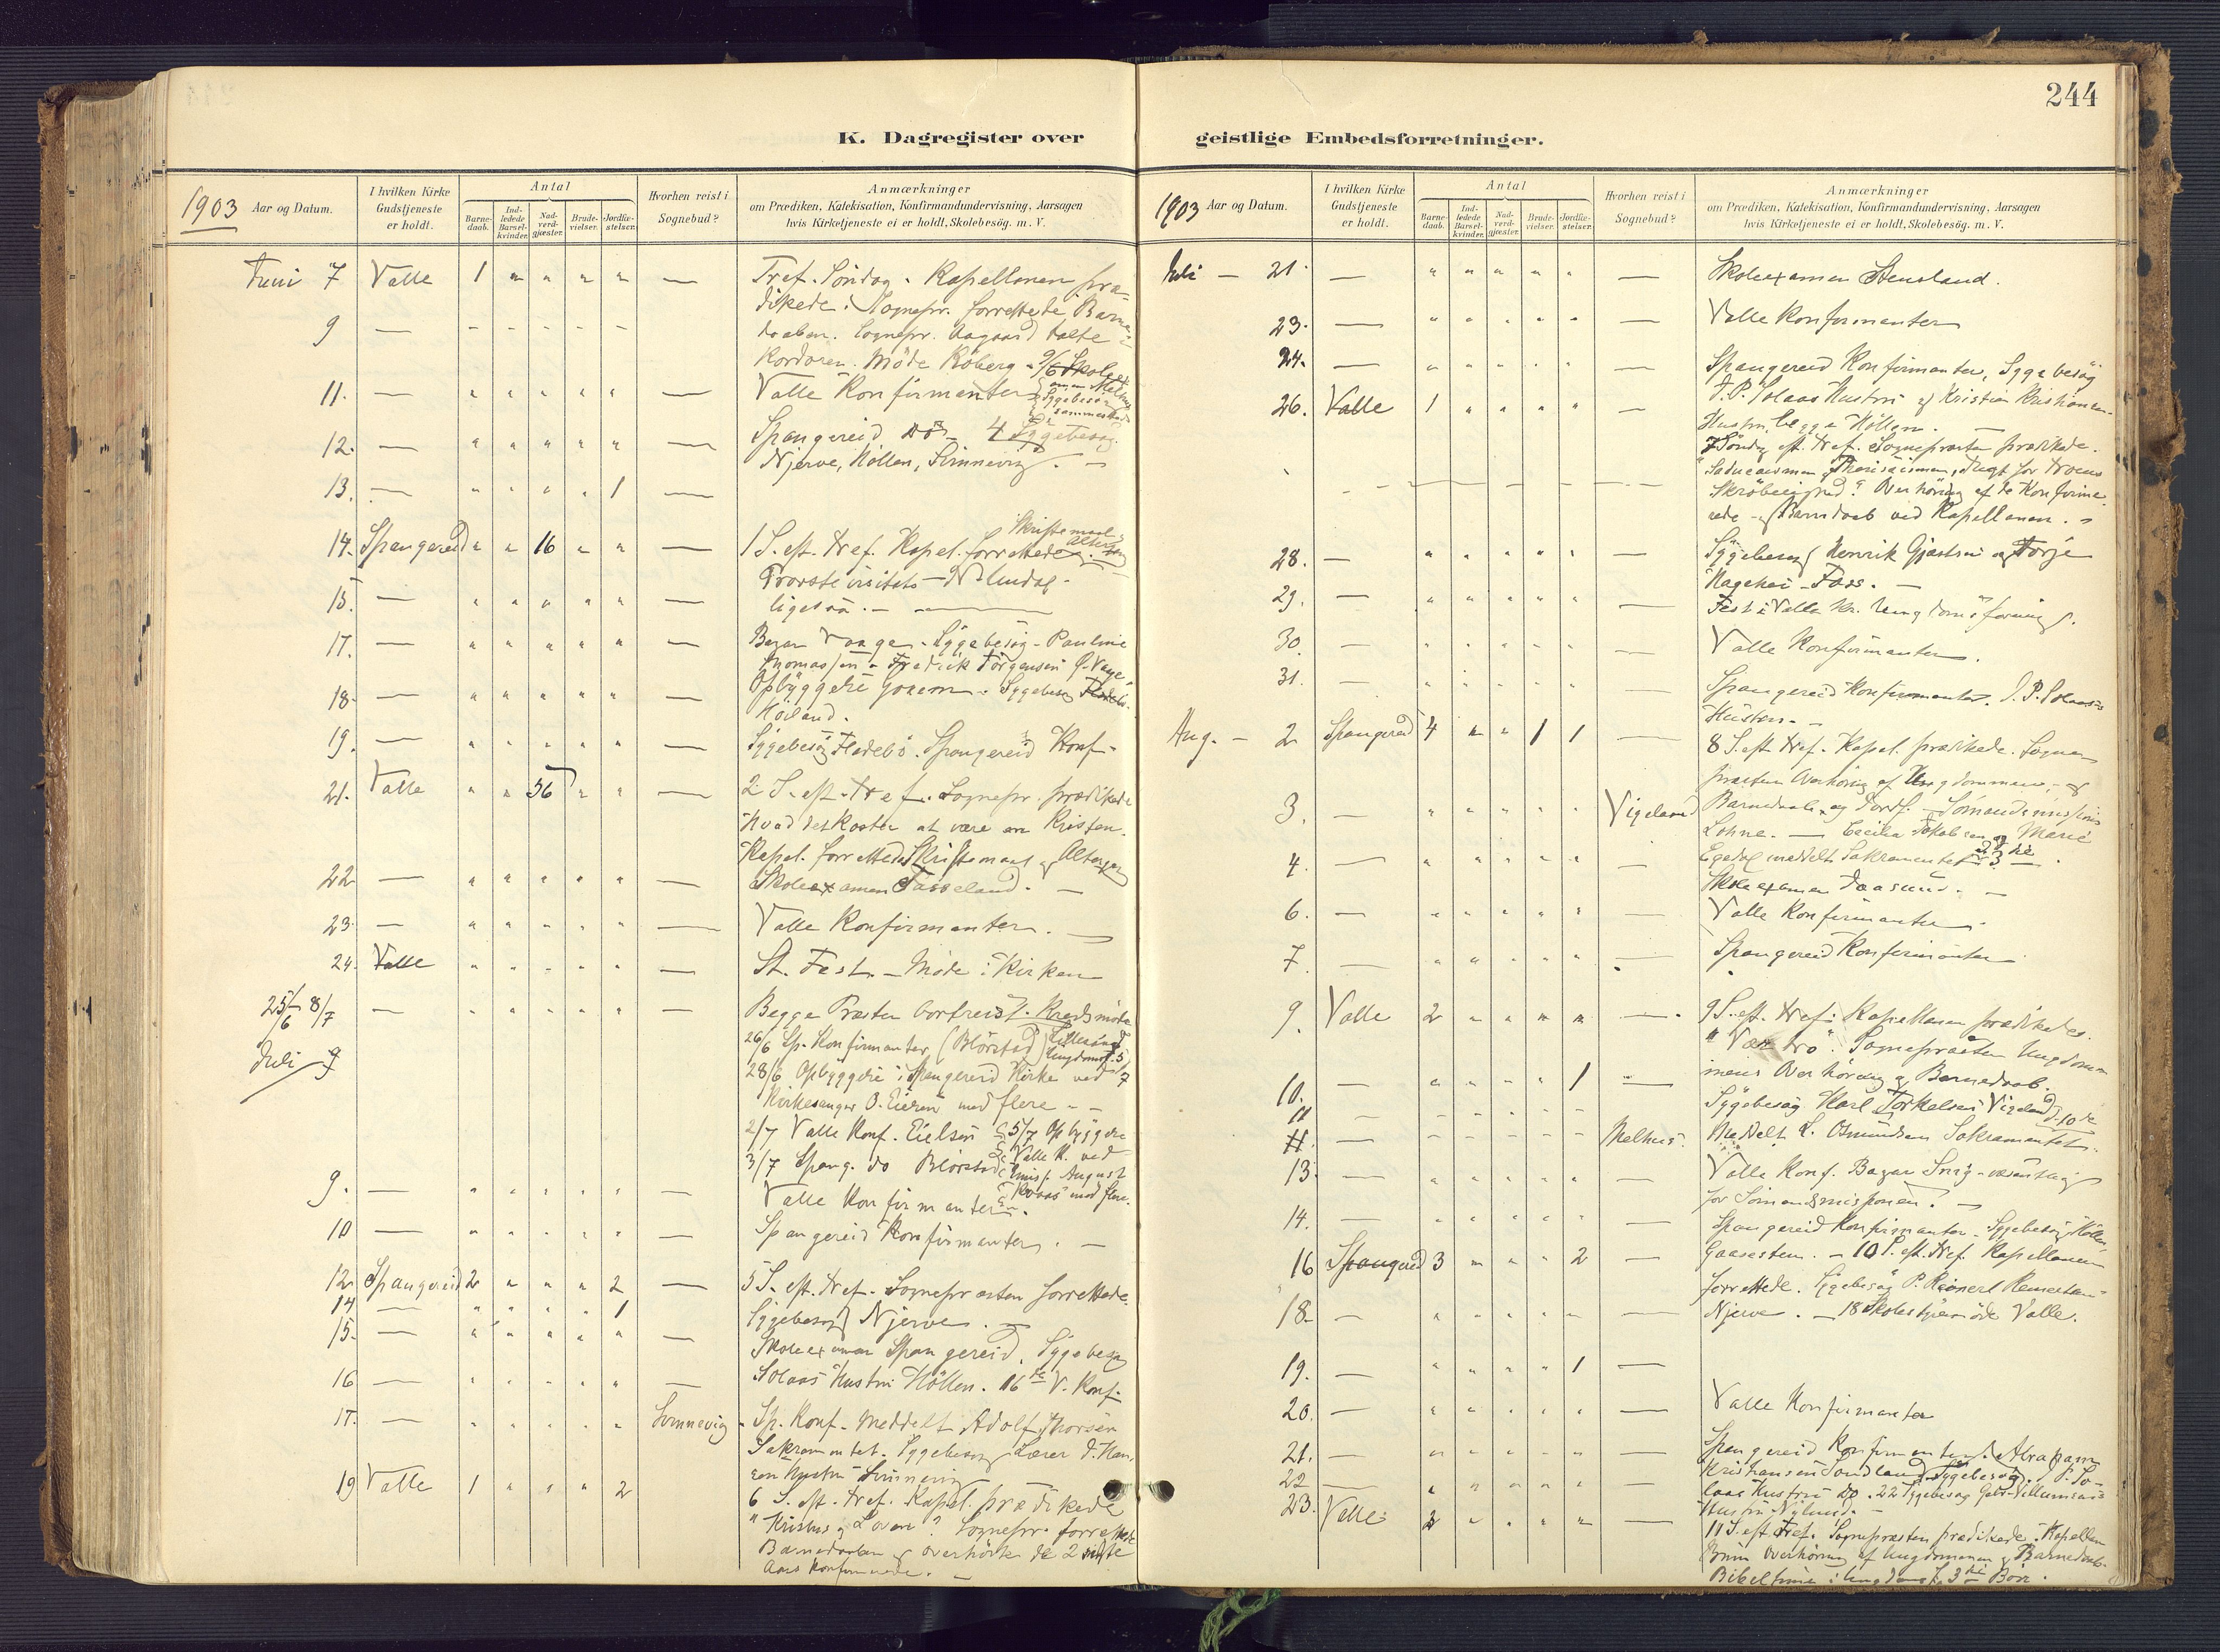 244
K. Dagregister over
geistlige Embedsforretninger.
1903 Aar og Datum.
I hvilken Kirke Gudstjeneste er holdt.
Antal
Barne-daab.
Ind-ledede Barsel-kvinder.
Nad-verd-gjæster.
Brude-vielser.
Jordfæ-stelser.
Hvorhen reist i Sognebud?
Anmærkninger
om Prædiken, Katekisation, Konfirmandundervisning, Aarsagen
hvis Kirketjeneste ei er holdt, Skolebesøg. m. V.
Juni 7 Valle 1 " " " " — Tref. Söndag. Kapellanen præ-
dikede. Sognepr. forrettede Barne-
9 — - - - - - daaben. Sognepr. Aagaard talte
Møde Köberg - 9/6 Skole
11. — " " " " " — Valle Konfirmanter
12. — " " " " " — Spangereid Do - 4 Sygebesög
Njerve, Höllen, Svinnevig. —
13. — " " " " 1 —
14. Spangereid " " 16 " " — 1 S. eft. Tref. Kapel. forrettede Skriftemaal
15. — " " " " " — Provstevisitats - N. Undal -
ligesaa. —
17. — " " " " " — Bazar Vaage. Sygebesög - Pauline
Thomassen - Fredrik Jörgensen
18 — " " " " " Opbyggelse
Höiland.
19. — " " " " " — Sygebesög Fladebö. Spangereid Konf.
21. Valle " " 56 " " — 2 S. eft. Tref. Sognepr. prædikede
Hvad det koster at være en Kristen.
Kapel. forrettede Skriftemaal og Altergang
22 — " " " " " — Skoleexamen Tasseland. —
23. — " " " " " — Valle Konfirmanter. —
24. Valle " " " " " — St. Fest. — Möde i Kirken
25/6 8/7 — " " " " " — Begge Præster bortreist. Kredsmöde
26/6 Sp. Konfirmanter (Blörstad)
Juli 9 28/6 Opbyggelse i Spangereid Kirke ved
Kirkesanger O. Eieren med flere - -
2/7 Valle Konf. Eielsen 5/7 Opbyggelse
3/7 Spang. do Blörstad Valle K. ved
August
9. — " " " " " — Valle Konfirmanter. med flere.
10 — " " " " " — Spangereid Konfirmanter. —
12 Spangereid 2 " " " 2 — 5 S. eft. Tref. Sognepræsten forrettede.
14 — " " " " 1 Sygebesög Njerve. —
15. — " " " " " — Skoleexamen Spangereid. Sygebesög
16 — " " " " " — Solaas Hustru Höllen. 16de V. Konf.
17. — " " " " " Svinnevig Sp. Konf. Meddelt Adolf Thorsen
Sakramentet. Sygebesög Lærer
Hustru Svinnevig
19 Valle 1 " " " 2 6 S. eft. Tref. Kapel. prædikede
"Kristus og Loven". Sognepr. forrettede
Barnedaaben og overhörte de 2 sidste
Aars Konfirmerede. —
1903 Aar og Datum.
I hvilken Kirke Gudstjeneste er holdt.
Antal
Barne-daab.
Ind-ledede Barsel-kvinder.
Nad-verd-gjæster.
Brude-vielser.
Jordfæ-stelser.
Hvorhen reist i Sognebud?
Anmærkninger
om Prædiken, Katekisation, Konfirmandundervisning, Aarsagen
hvis Kirketjeneste ei er holdt, Skolebesög. m. V.
Juli — 21. — " " " " " — Skoleexamen Stensland.
23. — " " " " " — Valle Konfirmanter
24. — " " " " " — Spangereid Konfirmanter, Sygebesög
26. Valle 1 " " " " — J. P. Solaas Hustru og Kristian Kristiansen
Hustru, begge Höllen. —
7 Söndag eft. Tref. Sognepræsten prædikede.
Overhöring af de Konfirme-
rede - Barndaab ved Kapellanen.
28. — " " " " " — Sygebesög Henrik Gjertsen og Torje
Hagehei - Foss. —
29. — " " " " " — Fest i Valle Kr. Ungdomsforening.
30. — " " " " " — Valle Konfirmanter.
31. — " " " " " — Spangereid Konfirmanter. J. P. Solaas's
Hustru. -
Aug. — 2 Spangereid 4 " " 1 1 — 8 S. eft. Tref. Kapel. prædikede. Sogne-
præsten Overhöring af Ungdommen, - og
3. — " " " " " Vigeland Barnedaab og Jordf. - Sömandsmission
Lohne. — Cecilia Jakobsen og Marie
4. — " " " " " — Egedal meddelt Sakramentet
Skoleexamen Faasund. —
6. — " " " " " — Valle Konfirmanter
7. — " " " " " — Spangereid Konfirmanter
9. Valle 2 " " " " — 9 S. eft. Tref. Kapellanen prædikede.
"Vær tro". Sognepræsten Ungdom-
mens Overhöring og Barnedaab.
10. — " " " " 1 — Sygebesög Karl Torkelsen Vigeland d. 10de
11 — - - - - - Melhus. Meddelt L. Osmundsen Sakramentet.
13. — " " " " " — Valle Konf. Bazar Snig
for Sömandsmissionen. —
14. — " " " " " — Spangereid Konfirmanter. Sygebesög Höllen,
16 Spangereid 3 " " " 2 — Gaasesten. — 10 S. eft. Tref. Kapellanen
forrettede. Sygebesög P. Reinert
18. — " " " " " — Njerve. — 18 Skolestyremöde Valle.
19. — " " " " 1 —
20. — " " " " " — Valle Konfirmanter
21. — " " " " " — Spangereid Konfirmanter. Abraham
22 — " " " " " — Kristiansen Sondland Sygebesög. P. So-
laas Hustru Do. 22 Sygebesög Gabr. Villumsens
23. Valle 2 " " " " — Hustru Nylund. -
11 S. eft. Tref. Sognepræsten prædikede. Kapellan
Bruun Overhöring af Ungdommen og Barnedaab.
Bibeltime i